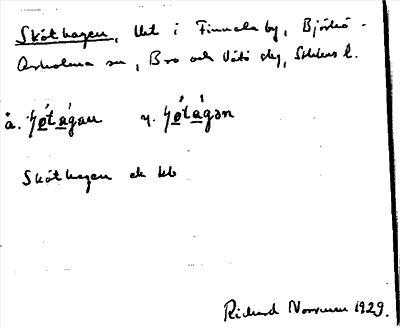 Skóthagen, llet i Finnala by, Björkö-
Arholma sn, Bro och Vätö skg, Sthlms l.
å. ʃø̀tágan y. ʃø̀tágən
Skóthagen ek kb
Richard 1929.